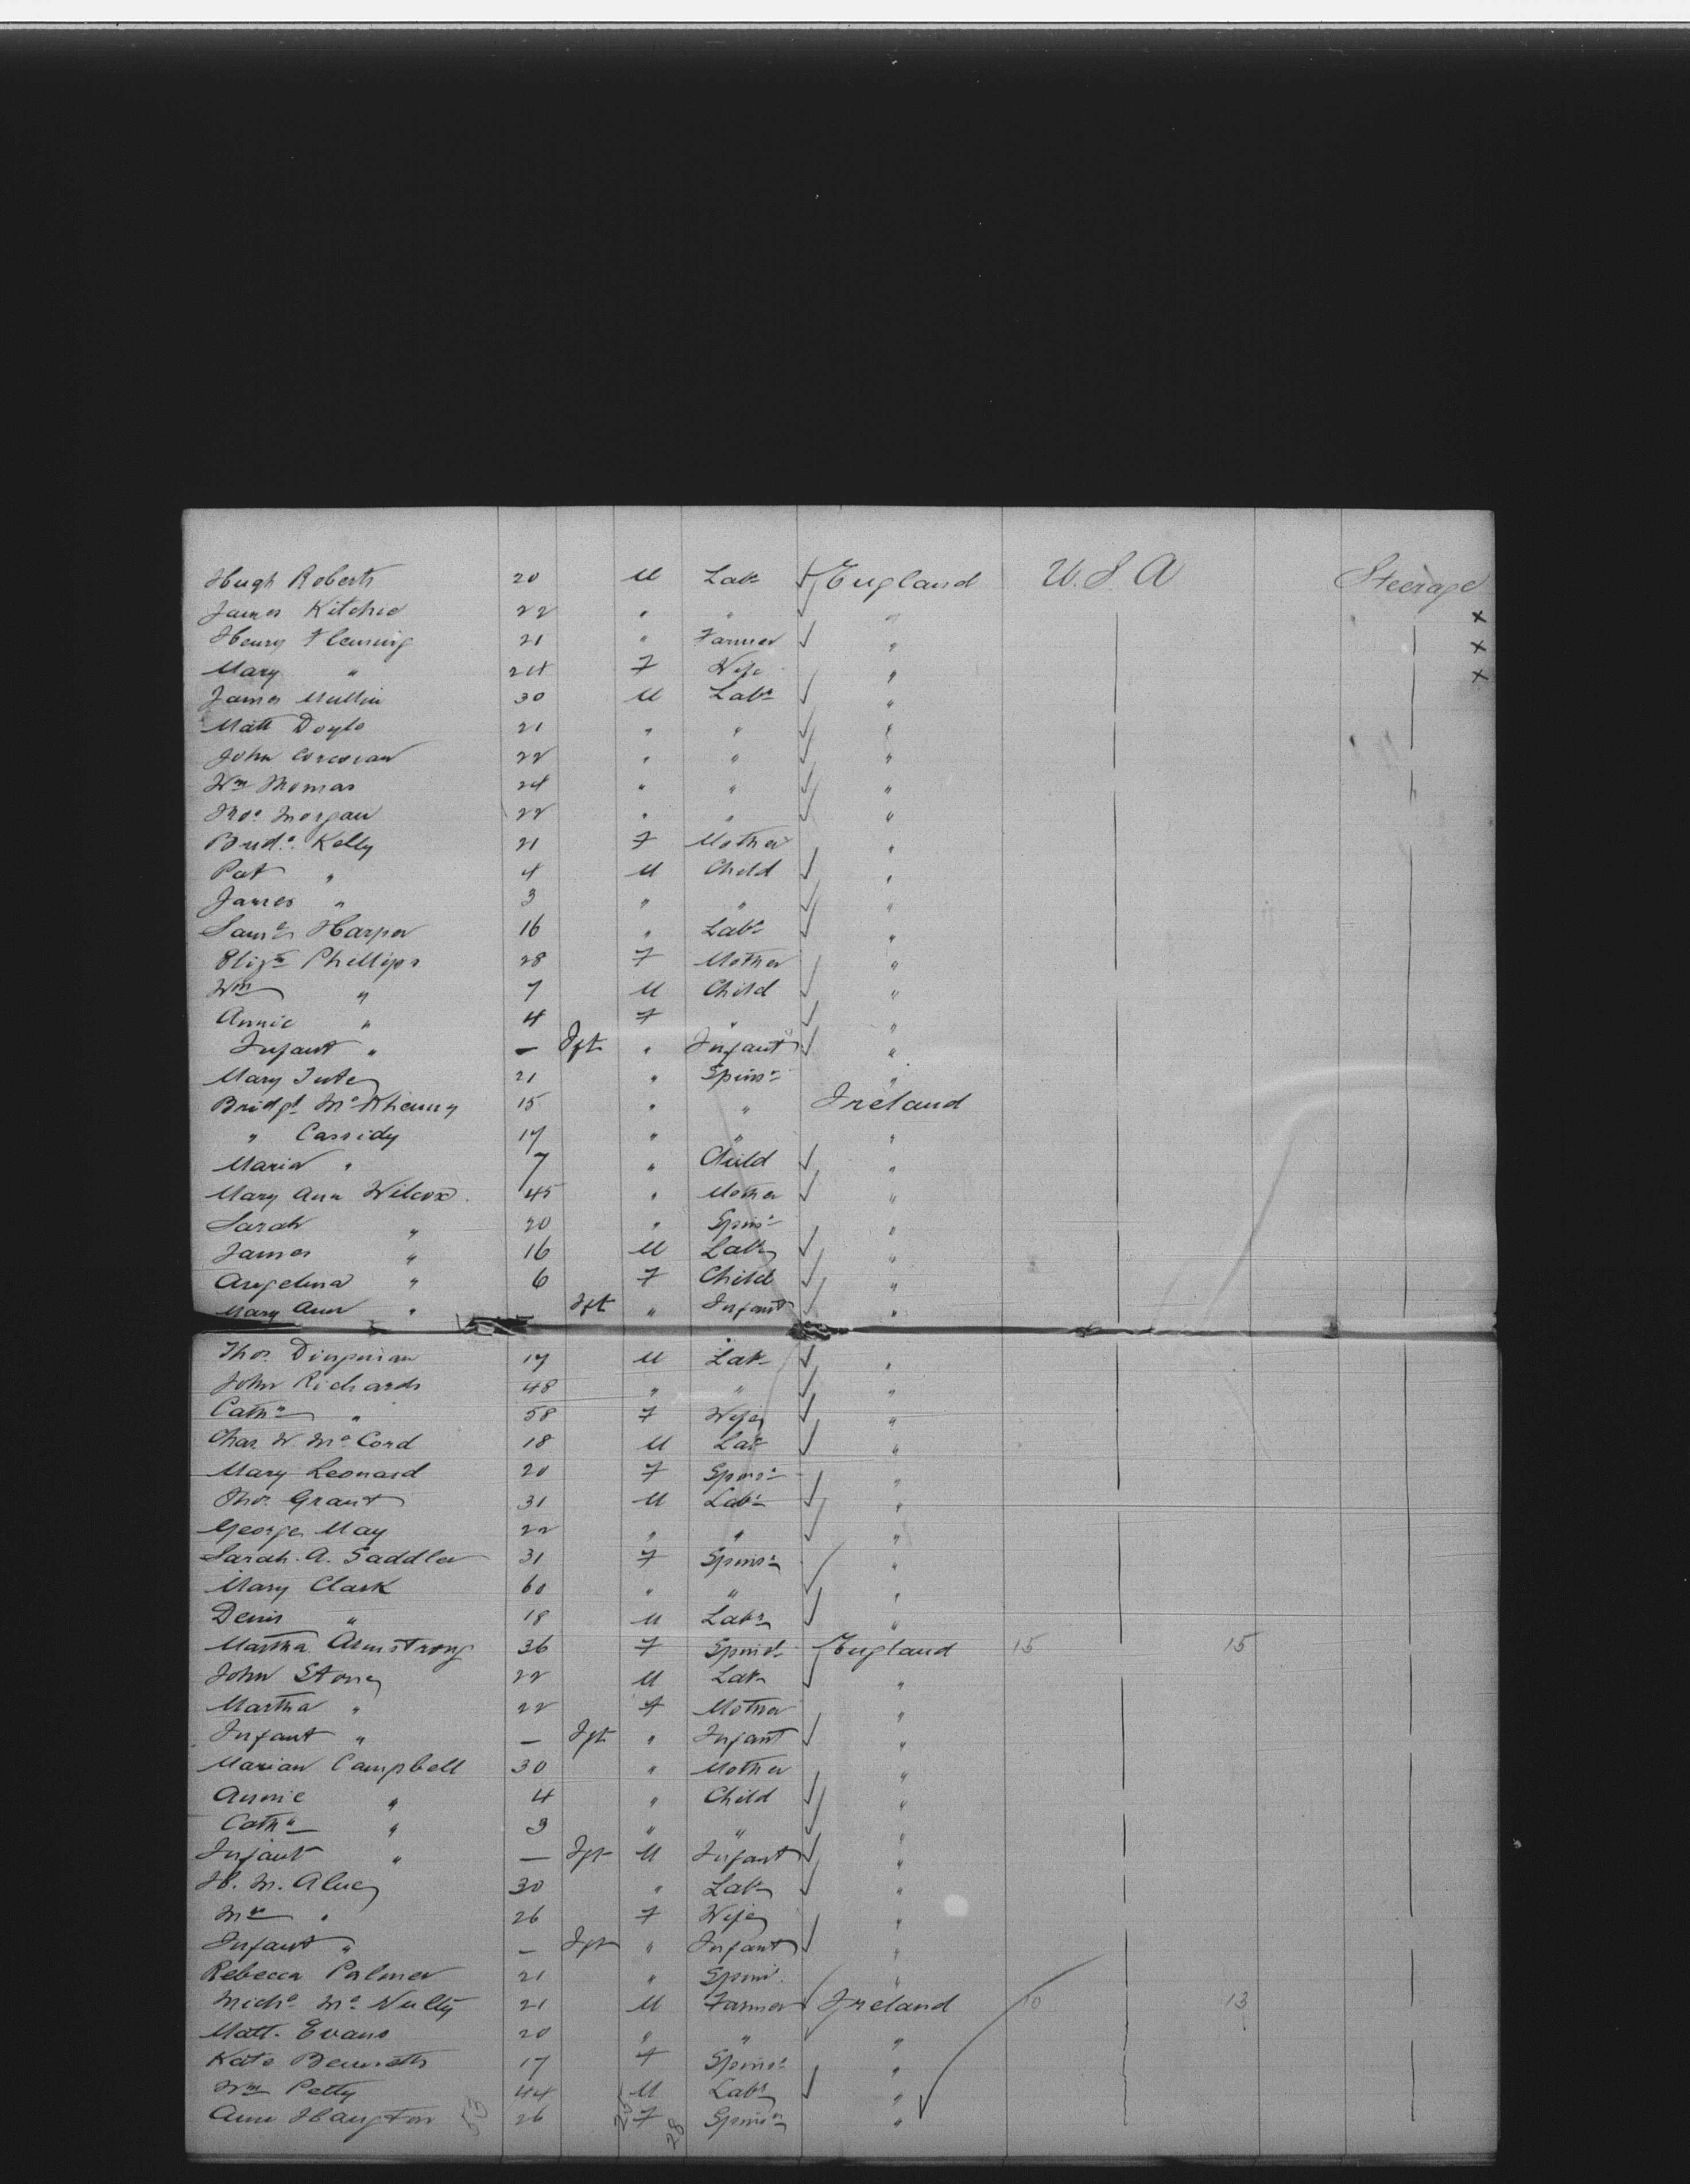 Hugh Roberts 20 M Labr England U.S.A Steerage
James Kitchie 22 " " " x
Henry Fleming 21 " Farmer " x
Mary " 24 F Wife " x
James Mullin 30 M Labr "
Matt Doyle 21 " " "
John Corcoran 22 " " "
Wm Thomas 24 " " "
Thos Morgan 22 " " "
Bridt Kelly 21 F Mother "
Pat " 4 M Child "
James " 3 " " "
Saml Harper 16 " Labr "
Elizth Phillips 28 F Mother "
Wm " 7 M Child "
Annie " 4 F " "
Infant " — Ift " Infant "
Mary 21 " Spinr "
Bridgt 15 " " Ireland
" Cassidy 17 " " "
Maria " 7 " Child "
Mary Ann Wilcox 45 " Mother "
Sarah " 20 " Spinr "
James " 16 M Labr "
Angelina " 6 F Child "
Mary Ann " — Ift " Infant "
Thos 17 M Labr "
John Richards 48 " " "
Cathn " 58 F Wife "
Chas W. McCord 18 M Labr "
Mary Leonard 20 F Spinr "
Thos Grant 31 M Labr "
George May 22 " " "
Sarah A. Saddler 31 F Spinr "
Mary Clark 60 " " "
Denis " 18 M Labr "
Martha Armstrong 36 F Spinr England 15 15
John Stone 22 M Labr "
Martha " 22 F Mother "
Infant " — Ift " Infant "
Marian Campbell 30 " Mother "
Annie " 4 " Child "
Cathn " 3 " " "
Infant " — Ift M Infant "
H. M. 30 " Labr "
Mrs " 26 F Wife "
Infant " — Ift " Infant "
Rebecca Palmer 21 " Spinr "
Michl McNulty 21 M Farmer Ireland 10 13
Matt. Evans 20 " " "
Kate 17 F Spinr "
Wm Petty 44 M Labr "
Ann Haughton 26 F Spinr "
28